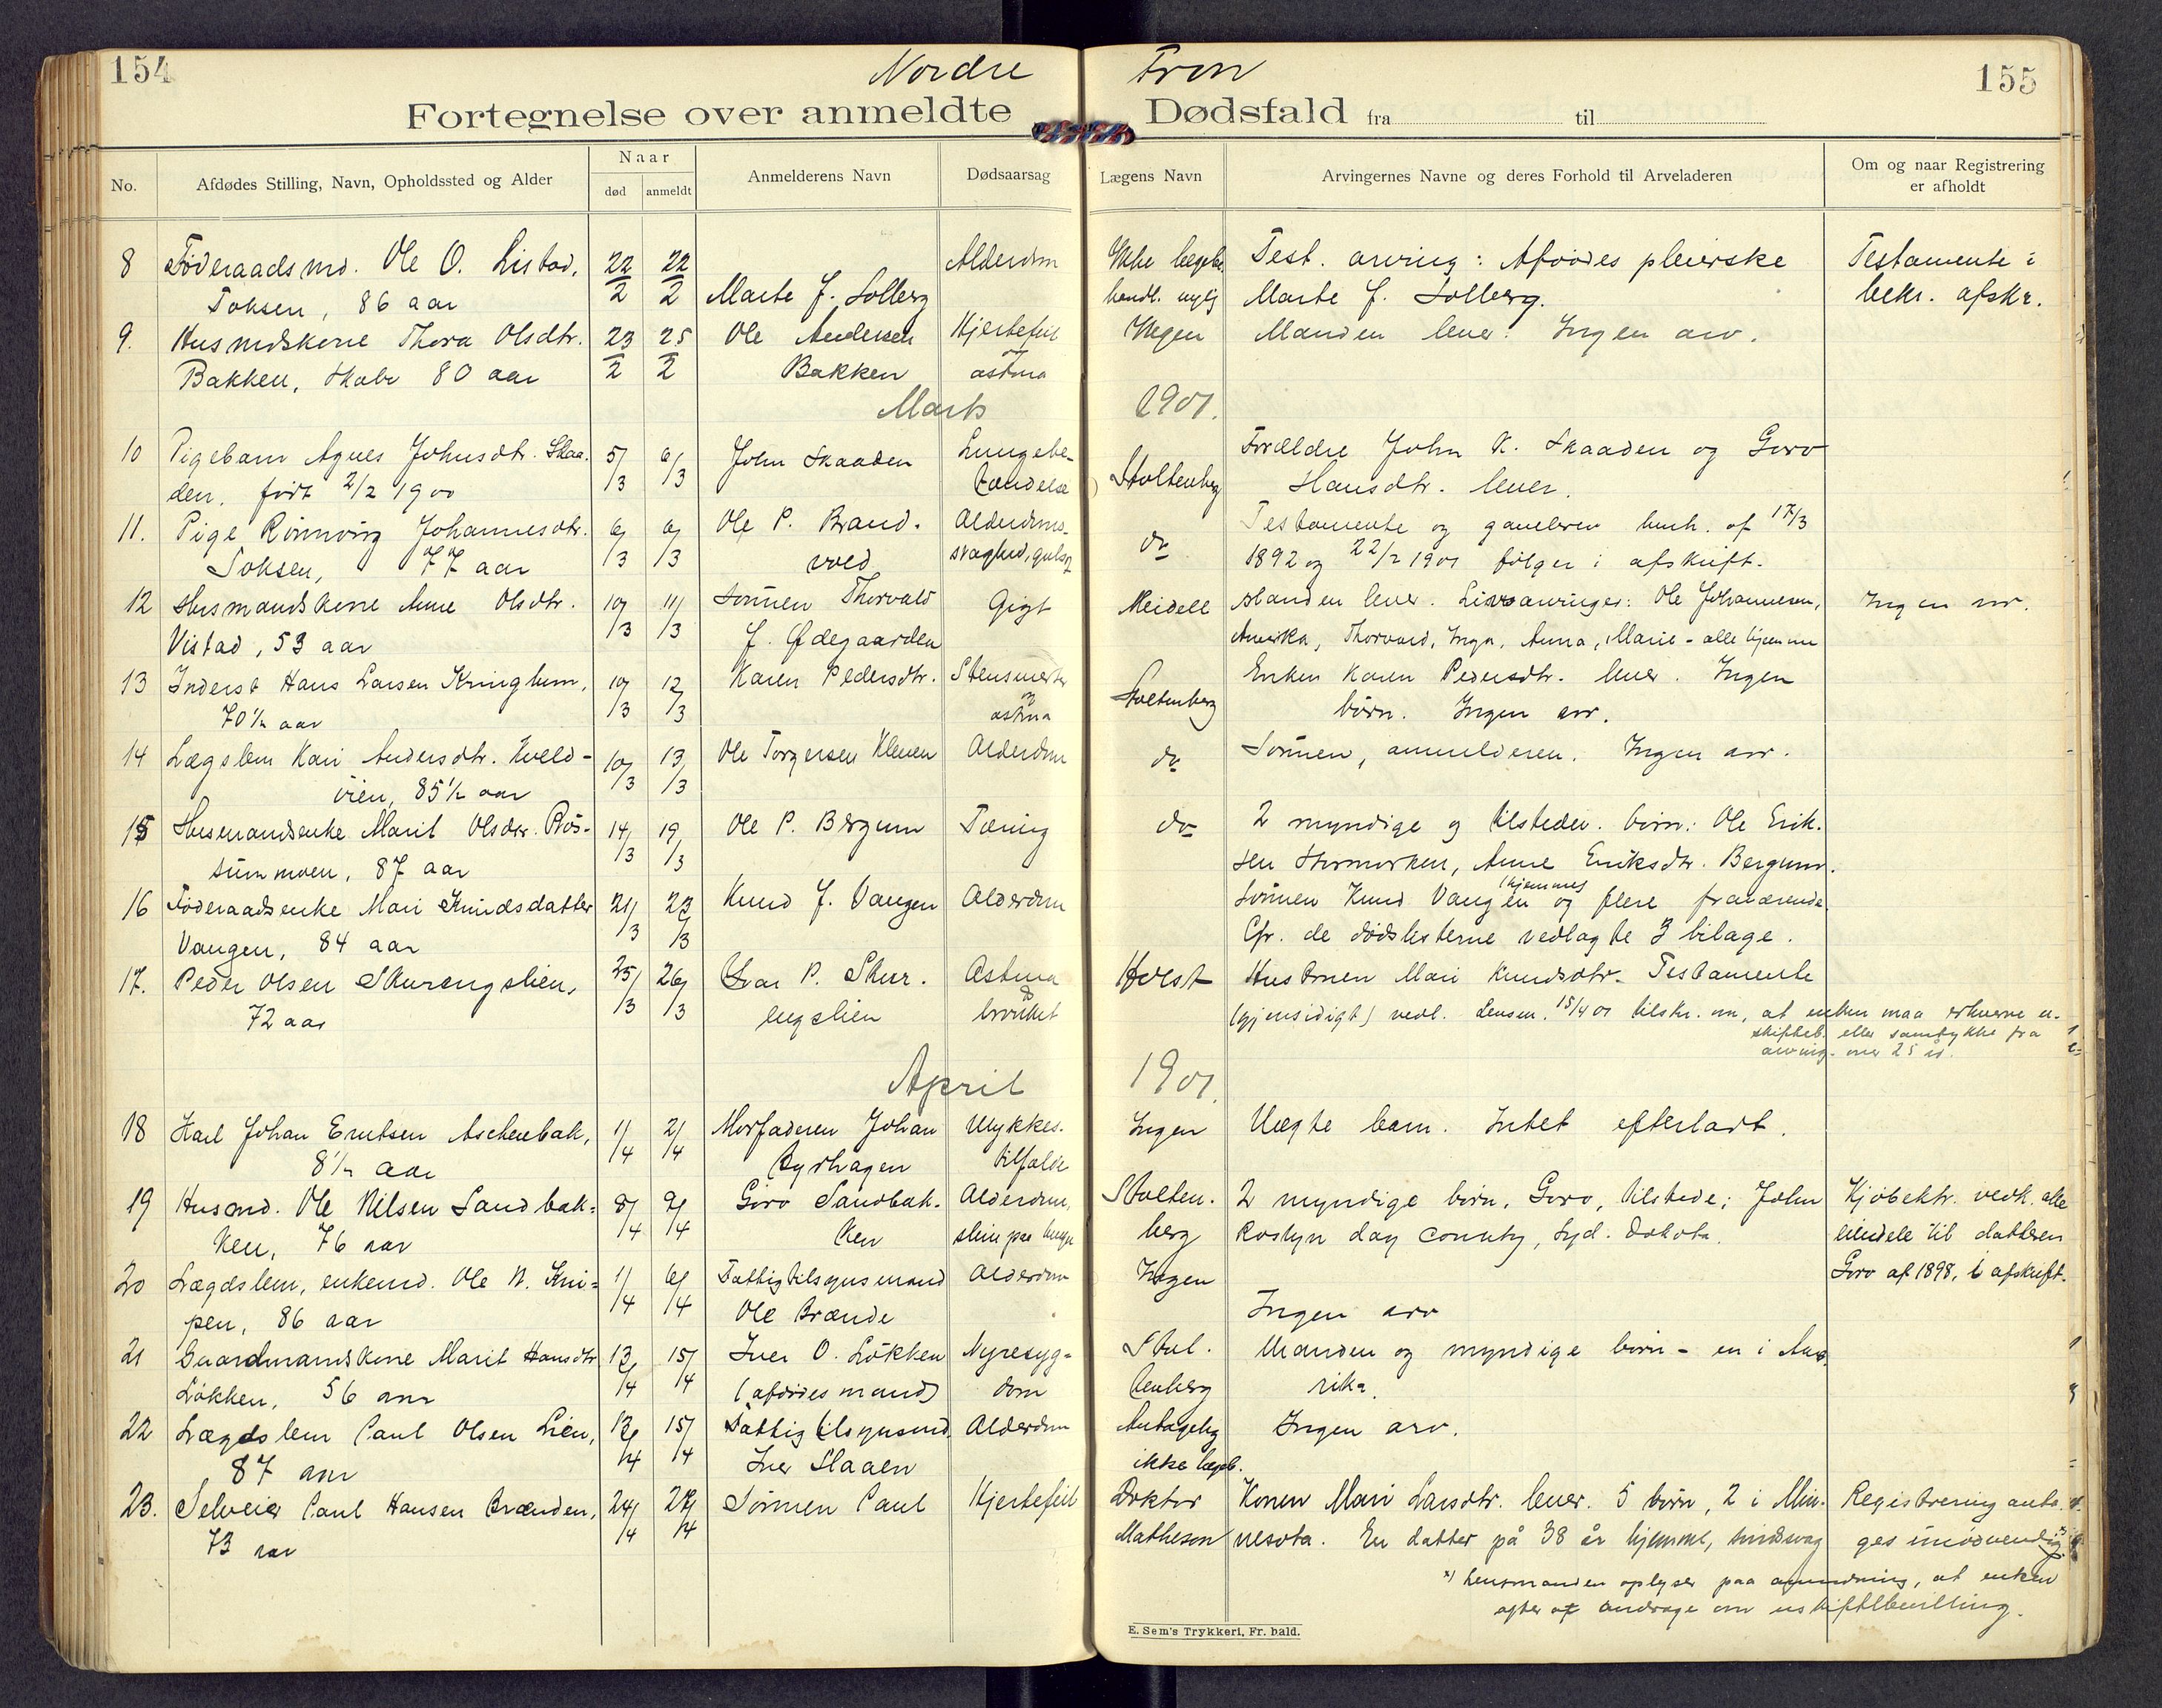 154
Nordre Fron
155
Fortegnelse over anmeldte Dødsfald fra til
No.
Afdødes Stilling, Navn, Opholdssted og Alder
Naar
død
anmeldt
Anmelderens Navn
Dødsaarsag
Lægens Navn
Arvingernes Navne og deres Forhold til Arveladeren
Om og naar Registrering
er afholdt
8 Føderaadsmd. Ole O. Listad, 22/2 22/2 Alderdom Ikke lægebe. Test. arving: Afdødes pleierske Testamente i
Toksen, 86 aar Marte J. Solberg handl. nylig Marte J. Solberg. bekr. afskr.
9. Husmdskone Thora Olsdtr. 23/2 25/2 Ole Andersen Hjertefeil Ingen Manden lever. Ingen arv.
Bakken, Skabo 80 aar Bakken og astma
Marts 1901.
10 Pigebarn Agnes Johnsdtr. Skaa- 5/3 6/3 John Skaaden Lungebe- Stoltenberg Forældre John K. Skaaden og Goro
den, født 2/2 1900 tændelse Hansdtr. lever.
11. Pige Rønnvig Johannesdtr. 6/3 6/3 Ole P. Brand- Alderdoms- do Testamente og gavebrev henh. af 17/3
Toksen, 77 aar vold svaghed, gulsot 1892 og 22/2 1901 følger i afskrift.
12 Husmandskone Anne Olsdtr. 10/3 11/3 Sønnen Thorvald Gigt Meidell Manden lever. Livsarvinger: Ole Johannesen, Ingen arv.
Vistad, 53 aar J. Ødegaarden Amerika, Thorvald, Inga, Anna, Marie - alle hjemme
13 Inderst Hans Larsen Kringlum, 10/3 12/3 Karen Pedersdtr. Stensmerter Stoltenberg Enken Karen Pedersdtr. lever. Ingen
70 1/2 aar og astma børn. Ingen arv.
14 Lægslem Kari Andersdtr. Kveld- 10/3 13/3 Ole Torgersen Kleven Alderdom do Sønnen, anmelderen. Ingen arv.
vien, 85 1/2 aar
15 Husmandsenke Marit Olsdtr. Røs- 14/3 19/3 Ole P. Bergum Tæring do 2 myndige og tilstedev. børn: Ole Erik-
tummoen, 87 aar sen Stormorken, Anne Eriksdtr. Bergum.
16 Føderaadsenke Mari Knudsdatter 21/3 23/3 Knud J. Vangen Alderdom Sønnen Knud Vangen hjemmes og flere fraværende.
Vangen, 84 aar Cfr. de dødslisterne vedlagte 3 bilage.
17. Peder Olsen Skurengslien, 25/3 26/3 Ivar P. Skur- Astma Holst Hustruen Mari Knudsdtr. Testamente
72 aar engslien & bronket (gjensidigt) vedl. Lensm. 15/4 01 tilskr. om, at enken maa erhverve u-
skifteb. eller samtykke fra
arving. over 25 år.
April 1901.
18 Karl Johan Erntsen Aschenbak, 1/4 2/4 Morfaderen Johan Ulykkes- Ingen Uægte barn. Intet efterladt.
8 1/2 aar Byrhagen tilfælde
19 Husmd. Ole Nilsen Sandbak- 8/4 9/4 Goro Sandbak- Alderdom, Stolten- 2 myndige børn, Goro, tilstede; John Kjøbektr. vedk. alle
ken, 76 aar ken slim paa lunge berg Roslyn day county, Syd. Dakota. eiendele til datteren
20 Lægdslem, enkemd. Ole N. Kni- 1/4 6/4 Fattigtilsynsmand Alderdom Ingen Goro af 1898, i afskrift.
pen, 86 aar Ole Brænde Ingen arv
21 Gaardmandskone Marit Hansdtr 13/4 15/4 Iver O. Løkken Nyresyg- Stol- Manden og myndige børn - en i Ame-
Løkken, 56 aar (afdødes mand) dom tenberg rika.
22 Lægdslem Paul Olsen Lien, 13/4 15/4 Fattigtilsynsmd. Alderdom Antagelig Ingen arv.
87 aar Iver Slaaen ikke lægeb.
23. Selveier Paul Hansen Brænden, 24/4 27/4 Sønnen Paul Hjertefeil Doktor Konen Mari Larsdtr. lever. 5 børn, 2 i Min- Registrering anta-
73 aar Matheson nesota. En datter på 38 år hjemme, sindssvag ges unødvendig. x)
x) Lensmanden oplyser paa anmodning, at enken
agter at andrage om uskiftebevilling.
E. Sem's Trykkeri, Fr. hald.